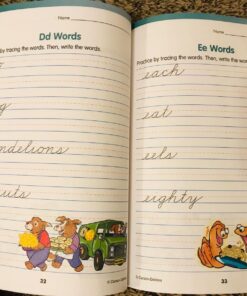 Name
Dd Words
by tracing the words. Then, write the words.
ndelions
nuts
22
© Carson-Dellosa
Name
Ee Words
Practice by tracing the words. Then, write the words.
each
eat
eels
eighty
© Carson-Dellosa
23